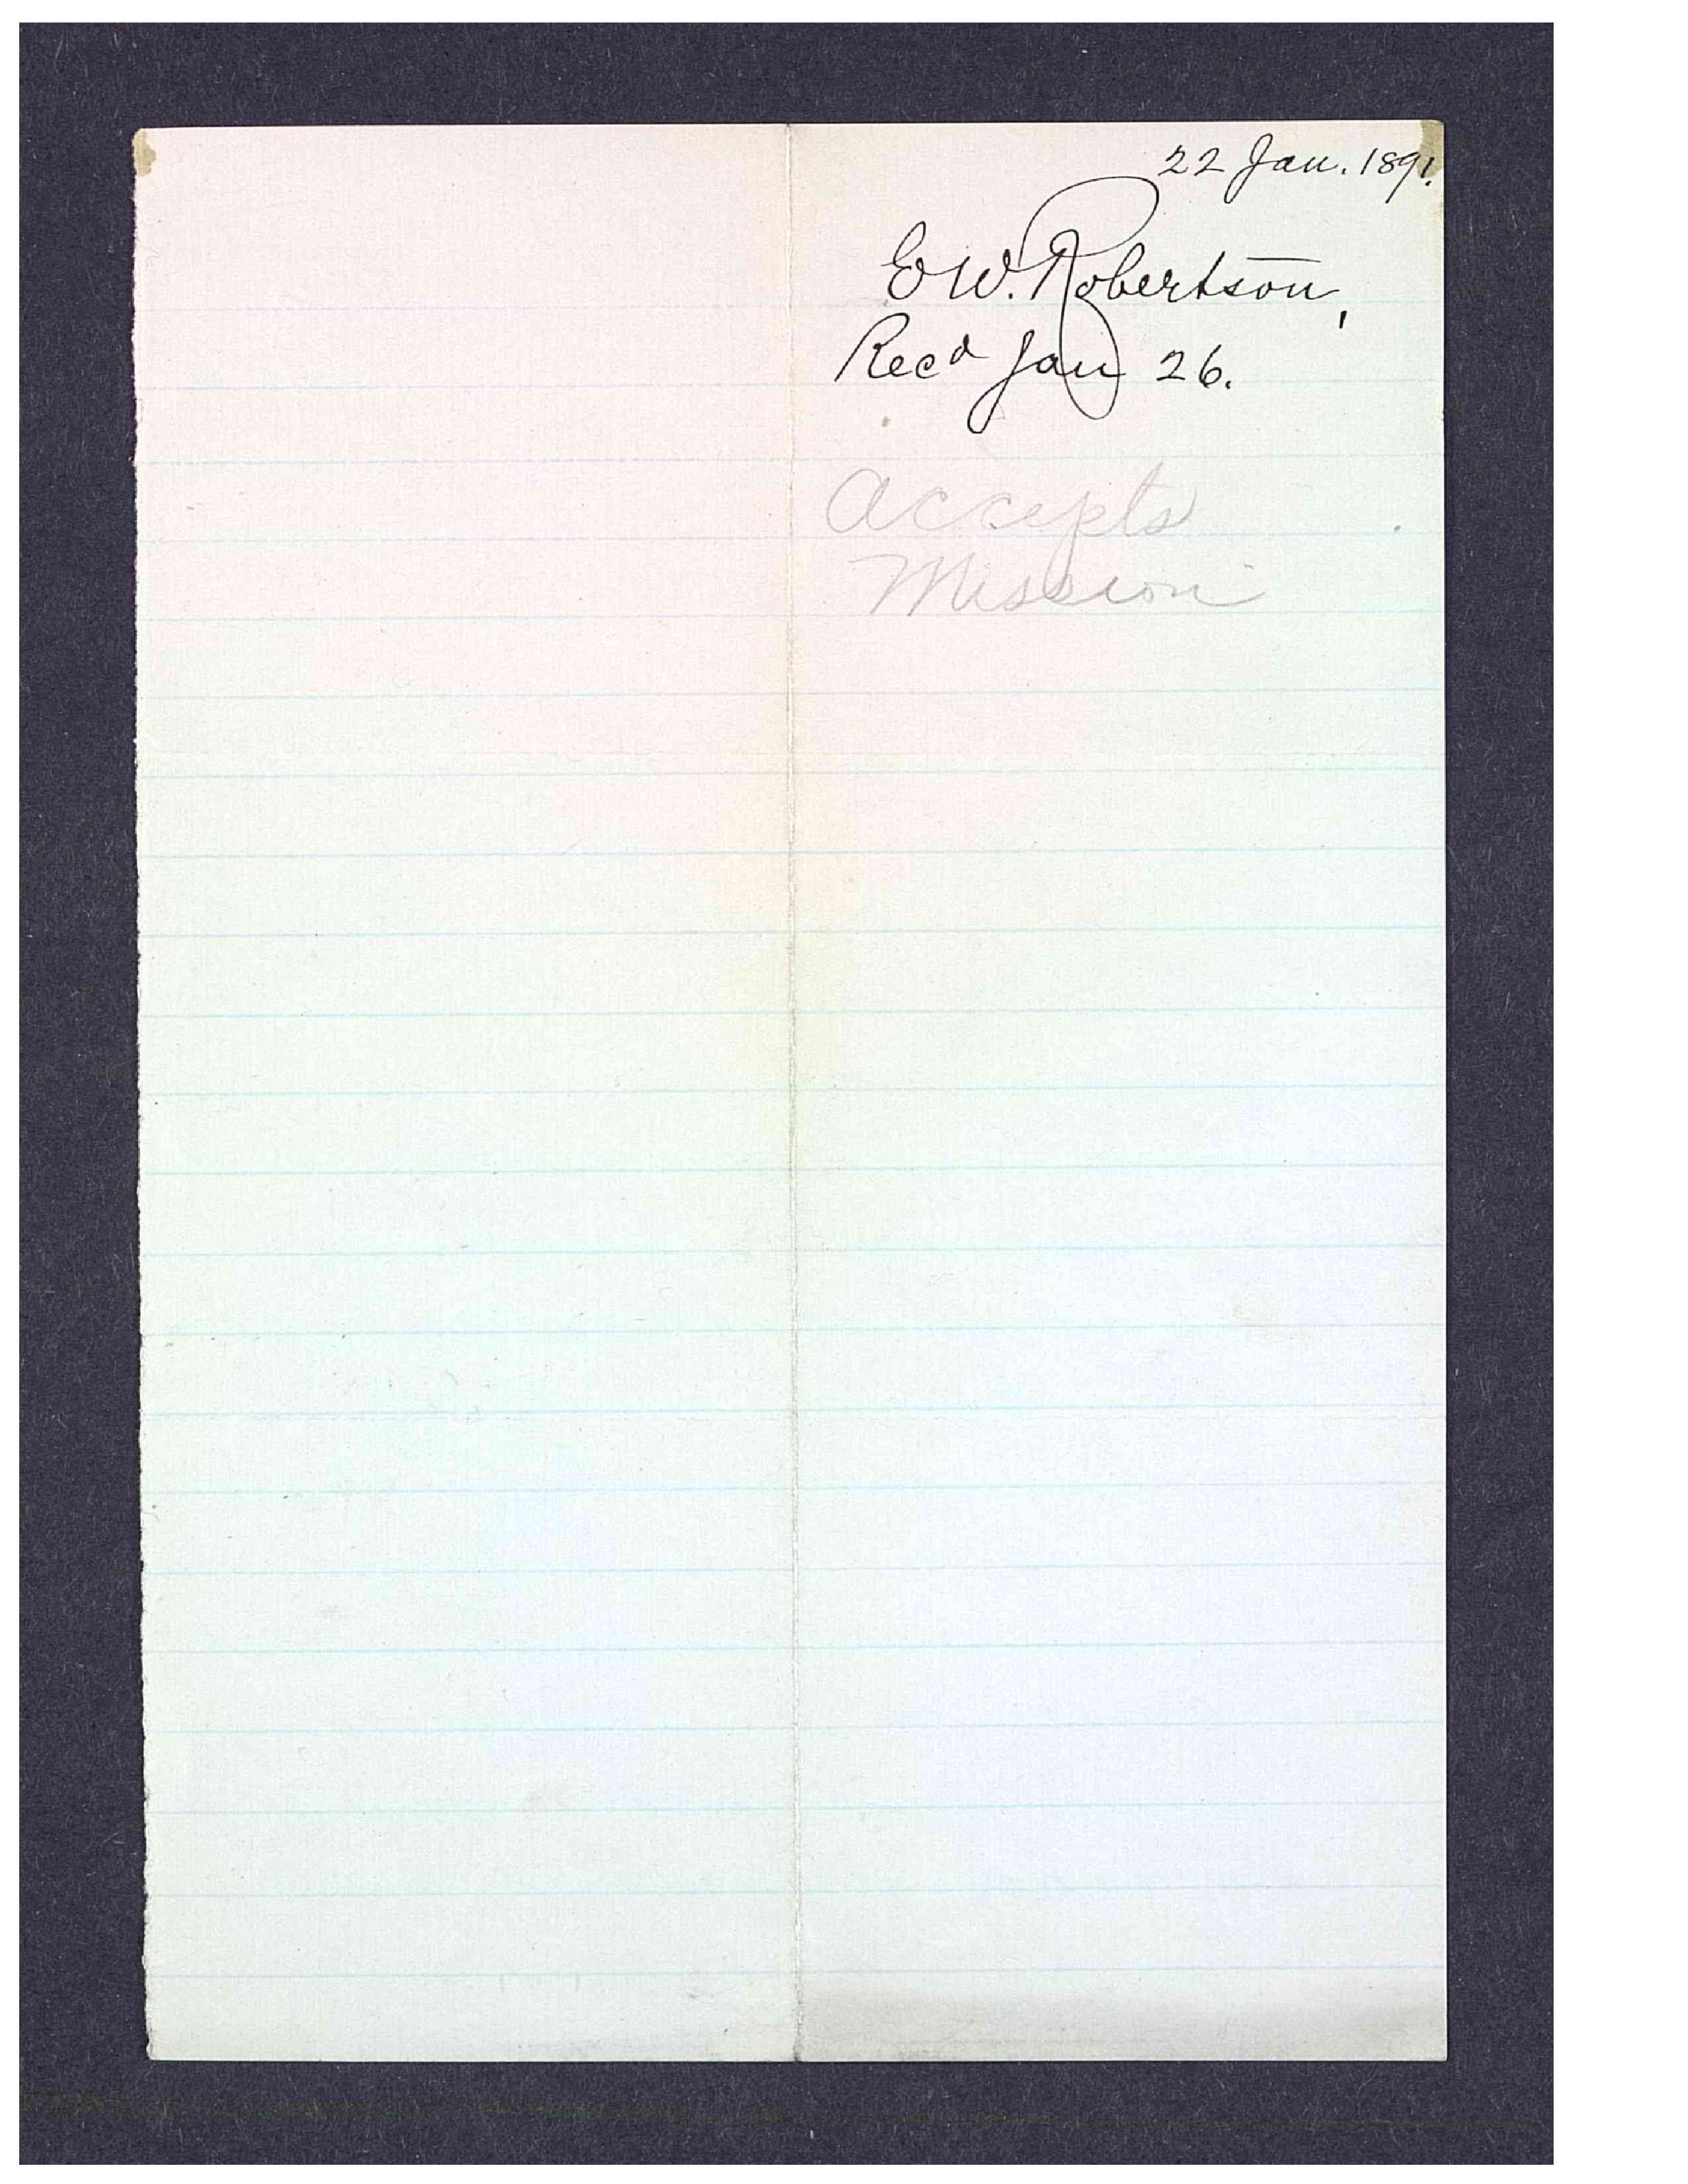 22 Jan. 1891.
E W. Robertson,
Recd Jan 26.
Accepts
Mission